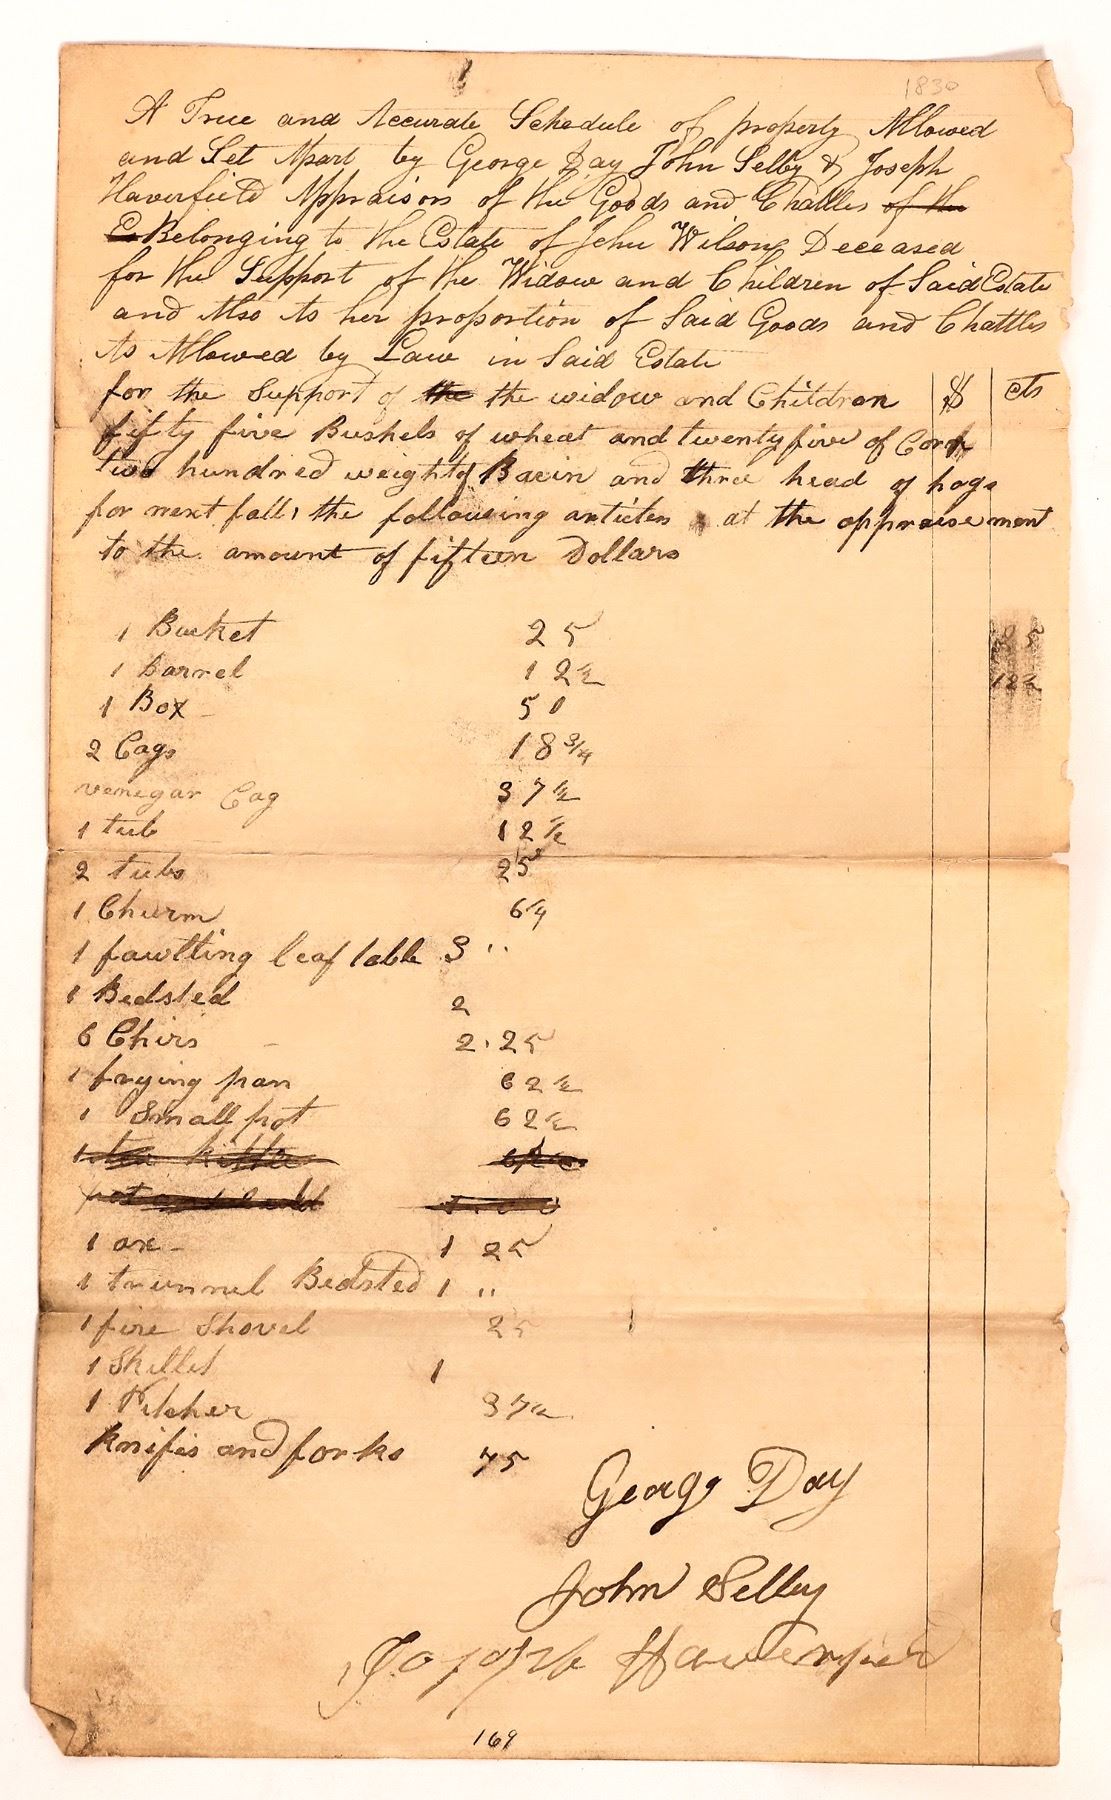 1830
A True and Accurate Schedule of property Allowed
and Set Apart by George Day John Selby & Joseph
Haverfield Appraisors of the Goods and Chattles of the
Belonging to the Estate of John Wilson Deceased
for the Support of the Widow and Children of Said Estate
and Also As her proportion of Said Goods and Chattles
As Allowed by Law in Said Estate
for the Support of the the widow and Children $ cts
fifty five Bushels of wheat and twenty five of Corn
two hundred weight of Bacin and three head of hogs
for next fall, the following articles at the appraisement
to the amount of fifteen Dollars
1 Bucket 25
1 Barrel 12½
1 Box 50
2 Cags 18¾
venegar Cag 37½
1 tub 12½
2 tubs 25
1 Churm 6¼
1 fawlting leaf table 3 "
1 Bedsted 2
6 Chirs 2.25
1 frying pan 62½
1 Small pot 62½
1 tea kittle
1 axe 1 25
1 trunnel Bedsted 1 "
1 fire Shovel 25
1 Skillet 1
1 Pitcher 37½
Knifis and forks 75
George Day
John Selby
Joseph Haverfield
169